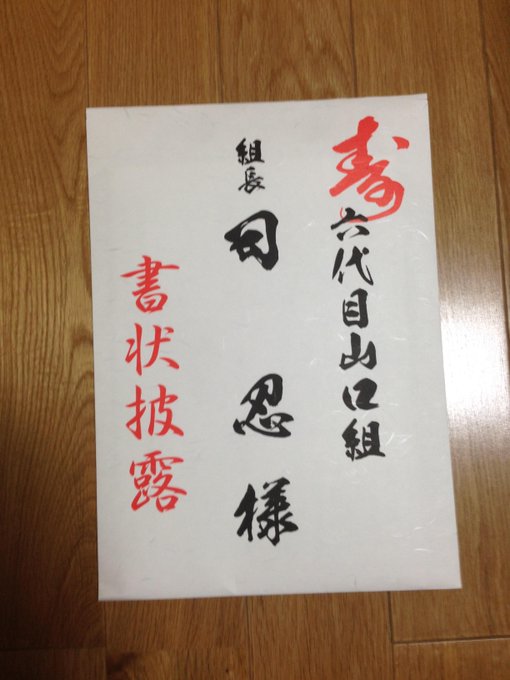 寿
六代目山口組
組長 司 忍 様
書状披露